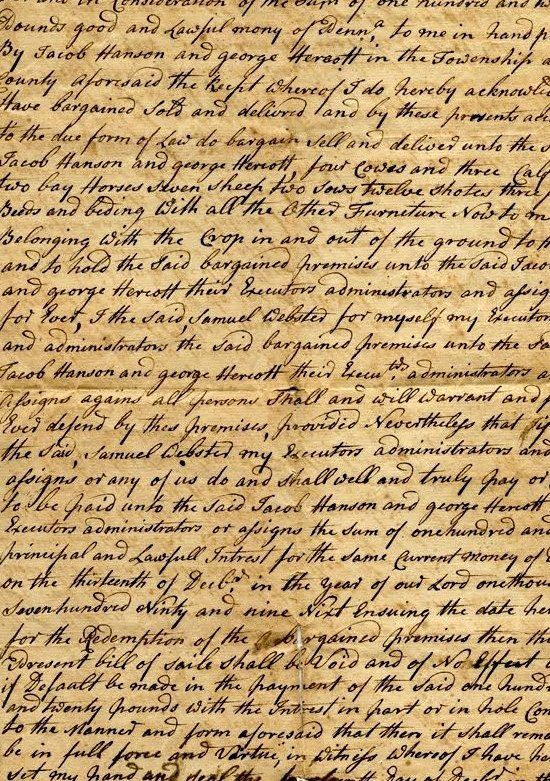 and in Consideration of the Sum of one hundred and
Pounds good and Lawful mony of Penn.a to me in hand p
By Jacob Hanson and george Hercott in the Township a
County aforesaid the Rec.pt whereof I do hereby acknowled
Have bargained Sold and delivred and by these presents acc
to the due form of Law do bargain Sell and deliver unto the s
Jacob Hanson and george Hercott, four Cowes and three Calf
two bay Horses Seven Sheep two Sows twelve Shotes three
Beeds and beding With all the Other Furneture Now to m
Belonging with the Crop in and out of the ground to h
and to hold the Said bargained premises unto the Said Jaco
and george Hercott their Executors administrators and assig
for Ever, I the Said, Samuel Webster for myself my Executor
and administrators the said bargained premises unto the Sa
Jacob Hanson and george Hercott their Execu.trs administrators a
Assigns agains all persons Shall and will Warrant and f
Ever defend by thes premises, provided Nevertheless that if
the Said, Samuel Webster my Executors administrators and
assigns or any of us do and Shall well and truly pay or
to be paid unto the Said Jacob Hanson and george Hercott
Executors administrators or assigns the Sum of onehundred and
principal and Lawfull Intrest for the same Current money of
on the thirteenth of Decb.r in the year of our Lord onethous
Sevenhundred Ninty and nine Nixt Ensuing the date her
for the Redemption of the bargained premises then th
present bill of saile Shall be Void and of No Effect
if Default be made in the payment of the Said one hund
and twenty pounds with the Intrest in part or in hole Con
to the Manner and form aforesaid that then it shall rema
be in full force and Virtue in Witness whereof I have h
Set my hand and Seal the